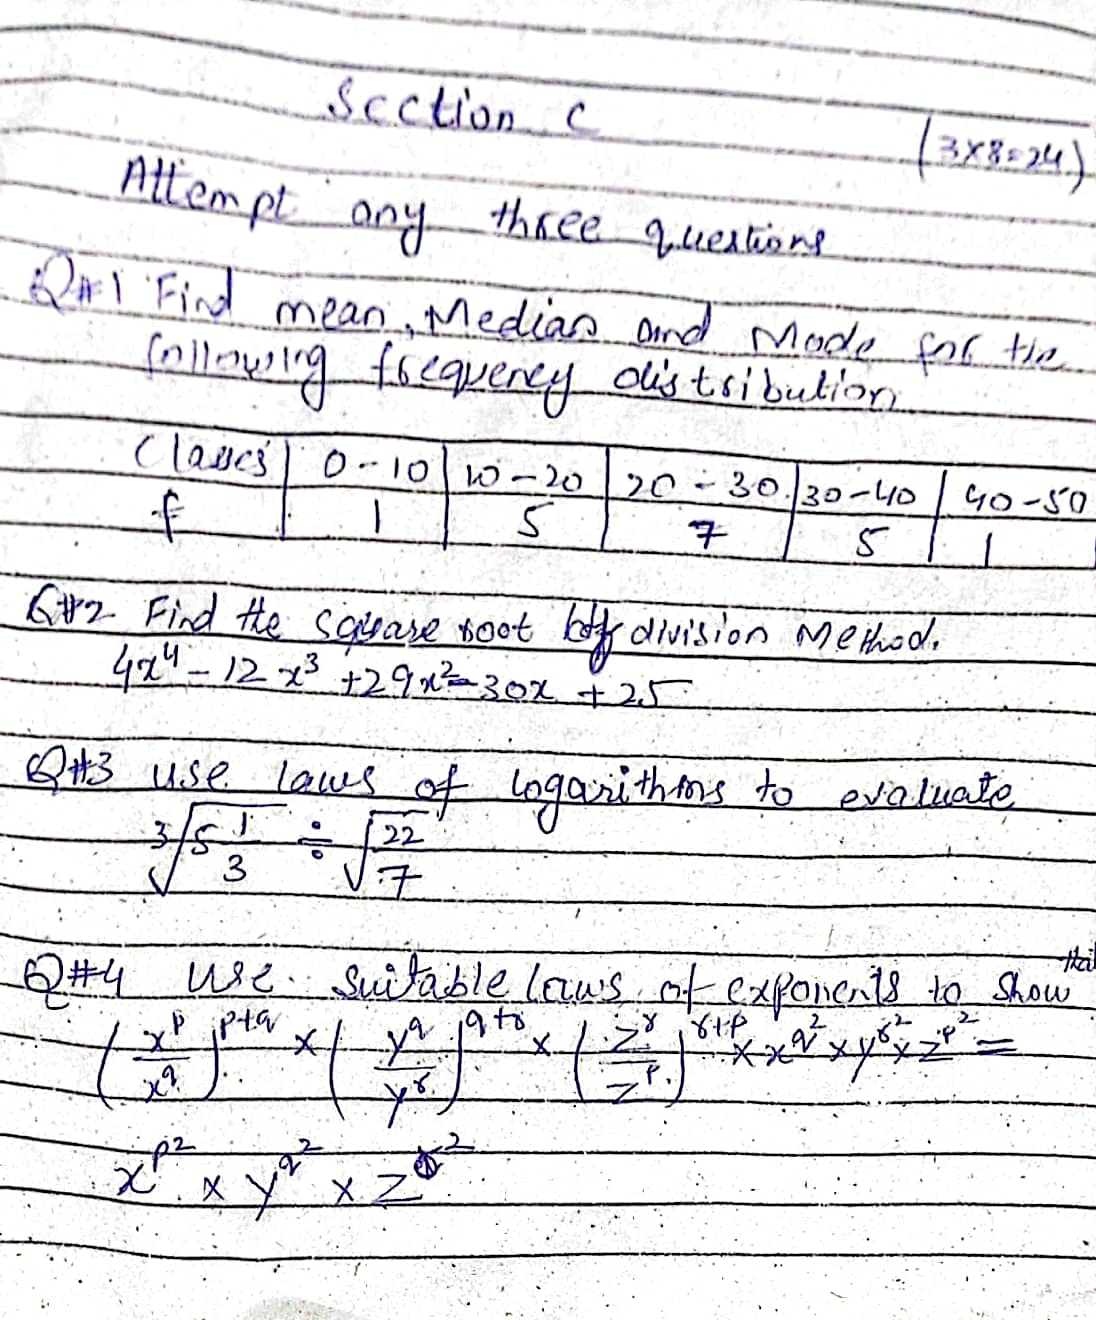 Section C
(3×8=24)
Attempt any three questions
Q#1 Find mean, Median and Mode for the
following frequency distribution
Classes | 0-10 | 10-20 | 20-30 | 30-40 | 40-50
f | 1 | 5 | 7 | 5 | 1
Q#2 Find the square root by division Method.
4x⁴ - 12x³ + 29x² - 30x + 25
Q#3 use laws of logarithms to evaluate
∛(5 1/3) ÷ √(22/7)
Q#4 use suitable laws of exponents to show that
(x^p/x^q)^(p+q) × (y^q/y^r)^(q+r) × (z^r/z^p)^(r+p) × x^(q²) × y^(r²) × z^(p²) =
x^(p²) × y^(q²) × z^(r²)